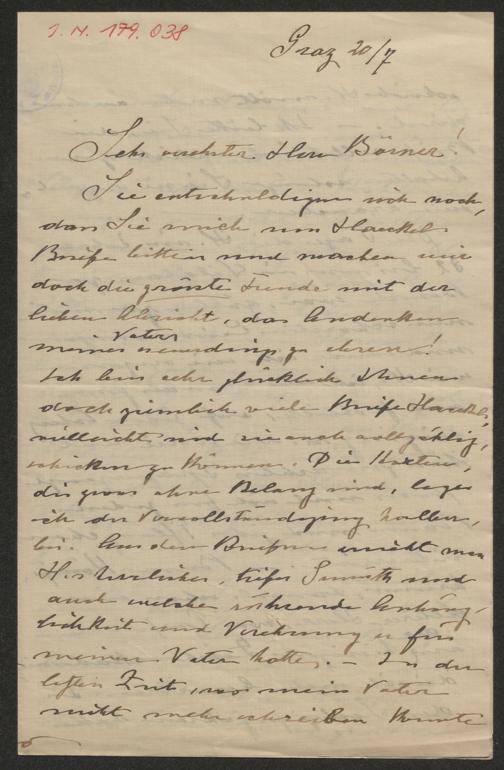 I. N. 179.038
Graz 20/7
Sehr verehrter Herr Börner!
Sie entschuldigen sich noch,
dass Sie mich um Haeckels
Briefe bitten und machen mir
doch die grösste Freude mit der
lieben Absicht, das Andenken
meines Vaters neuerdings zu ehren!
Ich bin sehr glücklich Ihnen
doch ziemlich viele Briefe Haeckels,
vielleicht sind sie auch vollzählig,
schicken zu können. Die Karten,
die zwar ohne Belang sind, lege
ich der Vervollständigung halber,
bei. Aus den Briefen ersieht man
H.s herrliches, tiefes Gemüth und
auch welche rührende Anhäng-
lichkeit und Verehrung er für
meinen Vater hatte. – In der
letzten Zeit, wo mein Vater
nicht mehr schreiben konnte